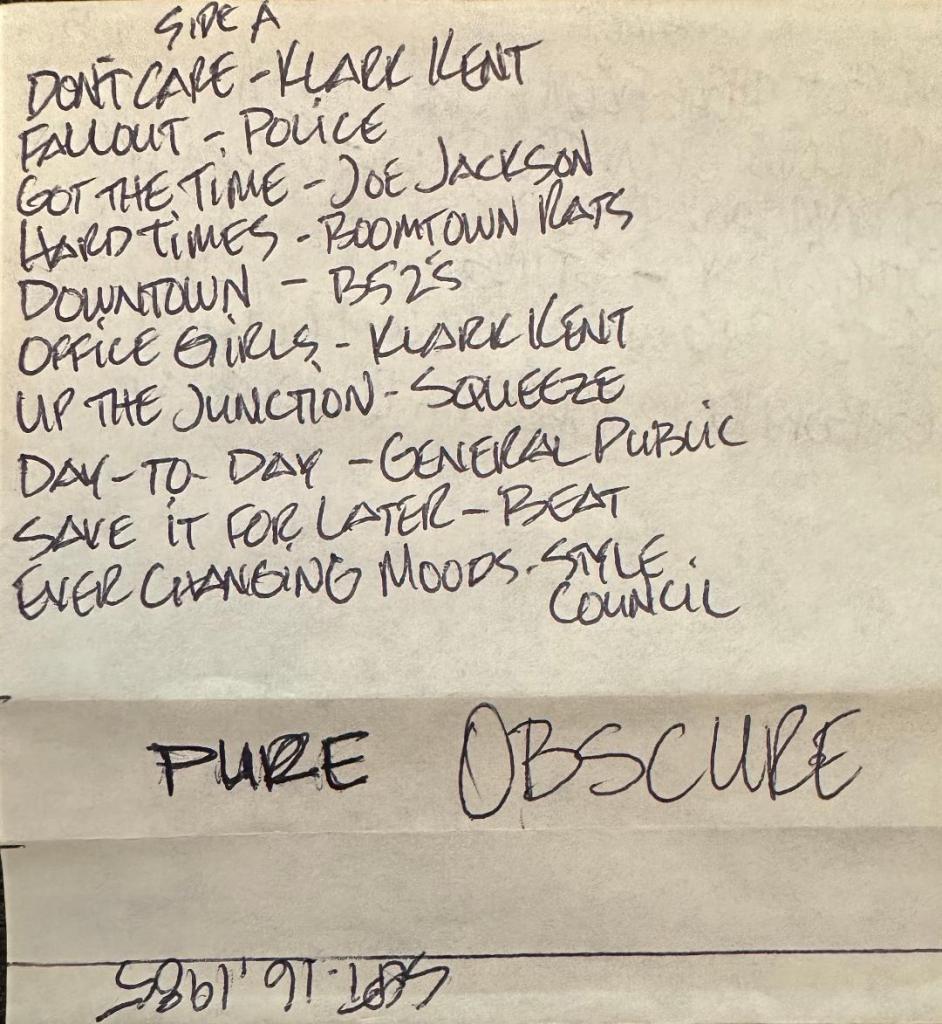 SIDE A
DON'T CARE - KLARK KENT
FALLOUT - POLICE
GOT THE TIME - JOE JACKSON
HARD TIMES - BOOMTOWN RATS
DOWNTOWN - B52'S
OFFICE GIRLS - KLARK KENT
UP THE JUNCTION - SQUEEZE
DAY-TO-DAY - GENERAL PUBLIC
SAVE IT FOR LATER - BEAT
EVER CHANGING MOODS - STYLE
COUNCIL
PURE OBSCURE
SEPT. 16, 1985